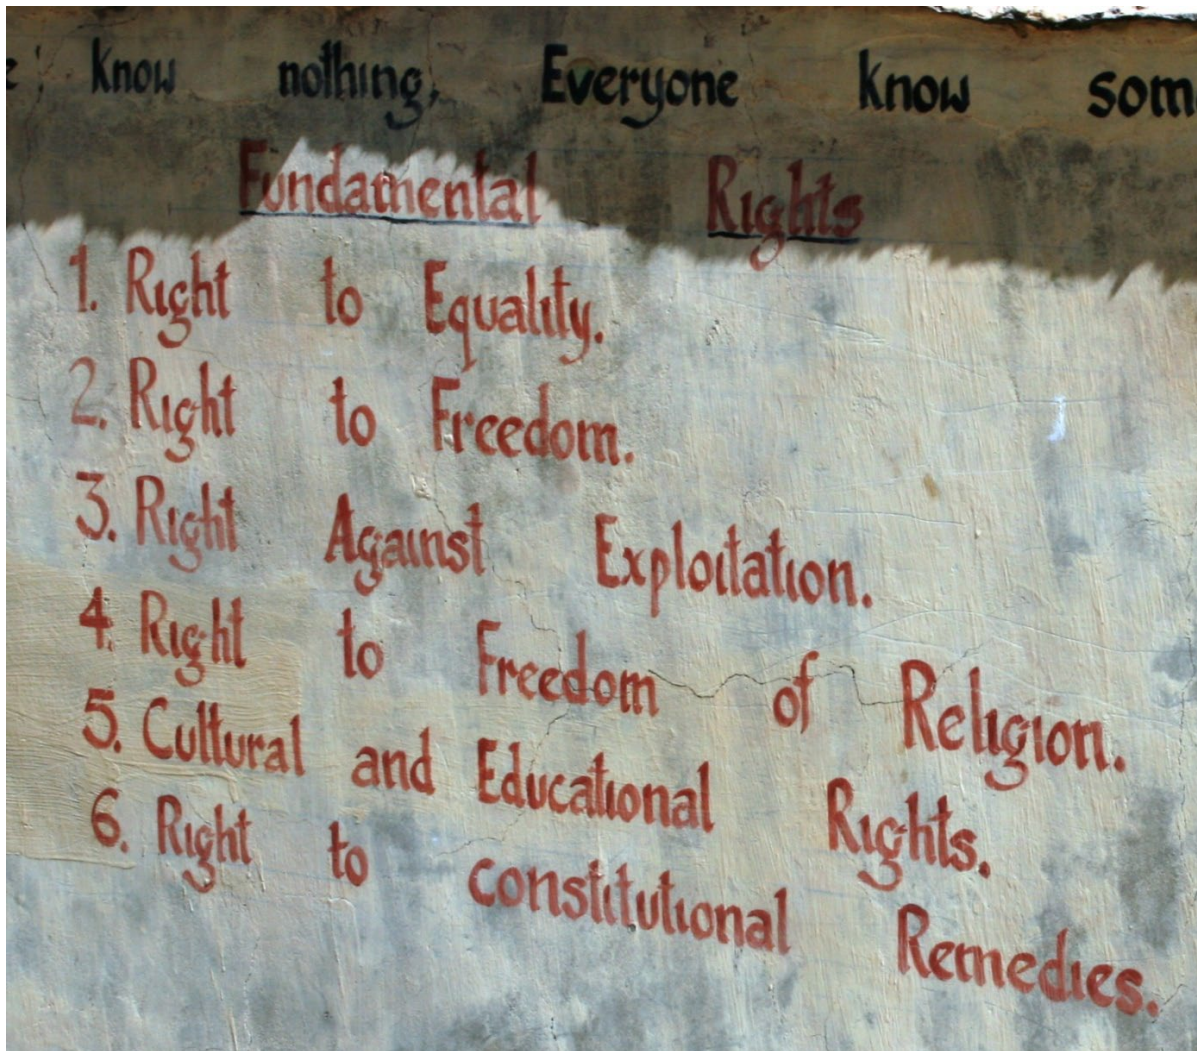 know nothing, Everyone know
Fundamental Rights
1. Right to Equality.
2. Right to Freedom.
3. Right Against Exploitation.
4. Right to Freedom of Religion.
5. Cultural and Educational Rights.
6. Right to constitutional Remedies.